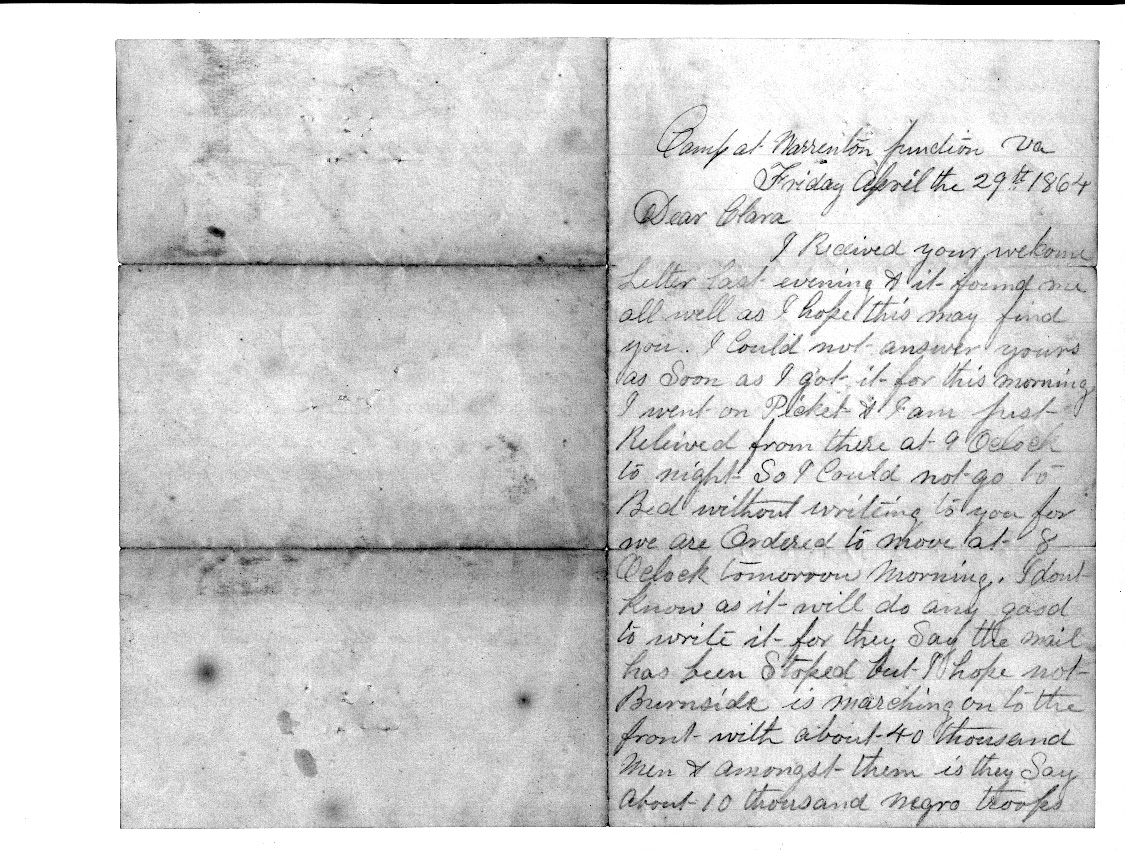 Camp at Warrenton junction Va
Friday April the 29th 1864
Dear Clara
I Recived your welcome
Letter Last evening & it found me
all well as I hope this may find
you. I Could not answer yours
as Soon as I got it for this morning
I went on Picket & I am just
Releived from there at 9 Oclock
to night So I Could not go to
Bed without writeing to you for
we are Ordered to move at 8
Oclock tomoroow Morning. I dont
know as it will do any good
to write it for they Say the mail
has been Stoped but I hope not
Burnside is marching on to the
front with about 40 thousand
Men & amongst them is they Say
about 10 thousand negro troops